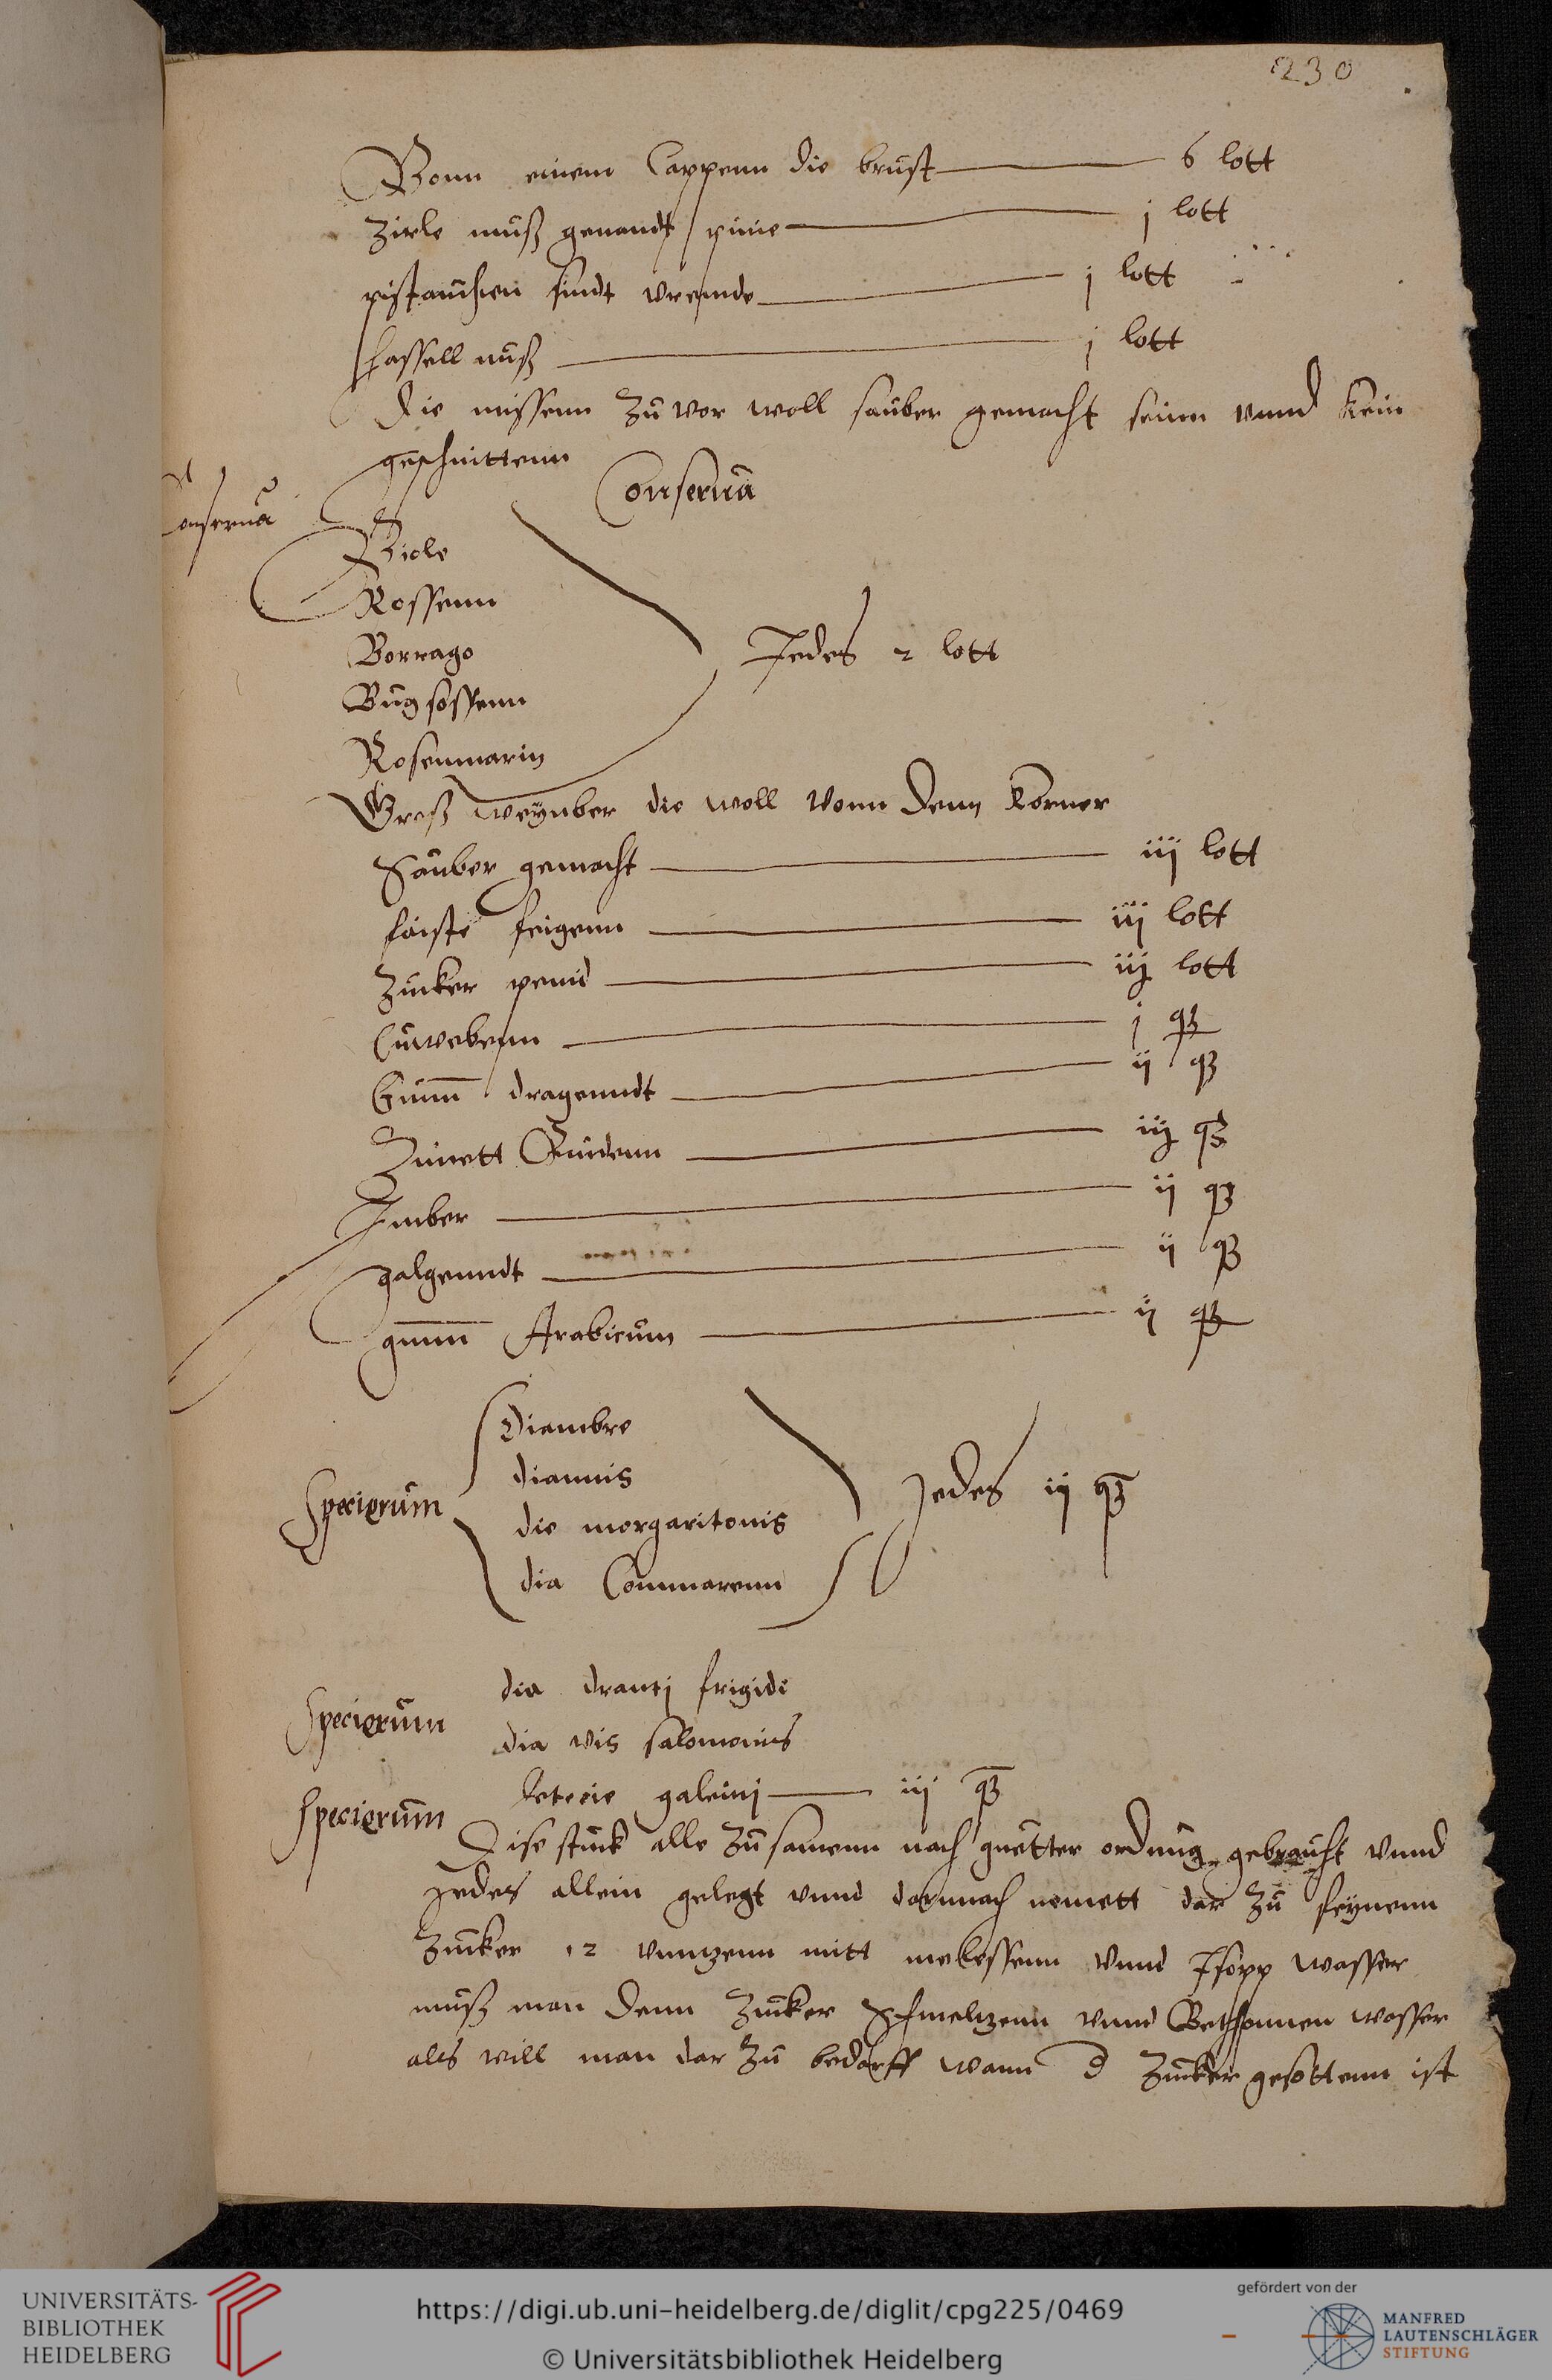 230
Vonn einem Cappenn die brust 6 lott
Zirle nuß genandt pinie j lott
pistauchen sindt vremde j lott
Hassell nuß j lott
die missenn zu vor woll sauber gemacht seinn vnnd klein
geschnittenn
Conserua
onserua
Viole
Rossenn
Borrago
Bugsossenn
Rosenmarin
Jedes 2 lott
Groß weynber die woll vonn denn korner
Sauber gemacht iij lott
faiste feigenn iiij lott
Zucker penid iij lott
Cuwebenn j q̃
Gum̅ dragenndt ij q̃
Zimett Rindenn iij q̃
Imber ij q̃
galgenndt ij q̃
gum̅ Arabicum ij q̃
Specierum
Diambre
diannis
die morgaritonis
dia Commarenn
Jedes ij q̃
Specierum
dia dranti frigidi
dia vis salomonis
Specierum
letrie galeinj iij q̃
Dise stuck alle zusamenn nach gutter ordnug gebraucht vnnd
jedes allein gelegt vnnd darnach nemett dar zu feynenn
Zucker 12 vnnzenn mitt melessenn vnnd Isopp wasser
muß man denn Zucker schmeltzenn vnnd Bethonien wasser
alls vill man dar zu bedarff wann d Zucker gesottenn ist
UNIVERSITÄTS-
BIBLIOTHEK
HEIDELBERG
https://digi.ub.uni-heidelberg.de/diglit/cpg225/0469
© Universitätsbibliothek Heidelberg
gefördert von der
MANFRED
LAUTENSCHLÄGER
STIFTUNG